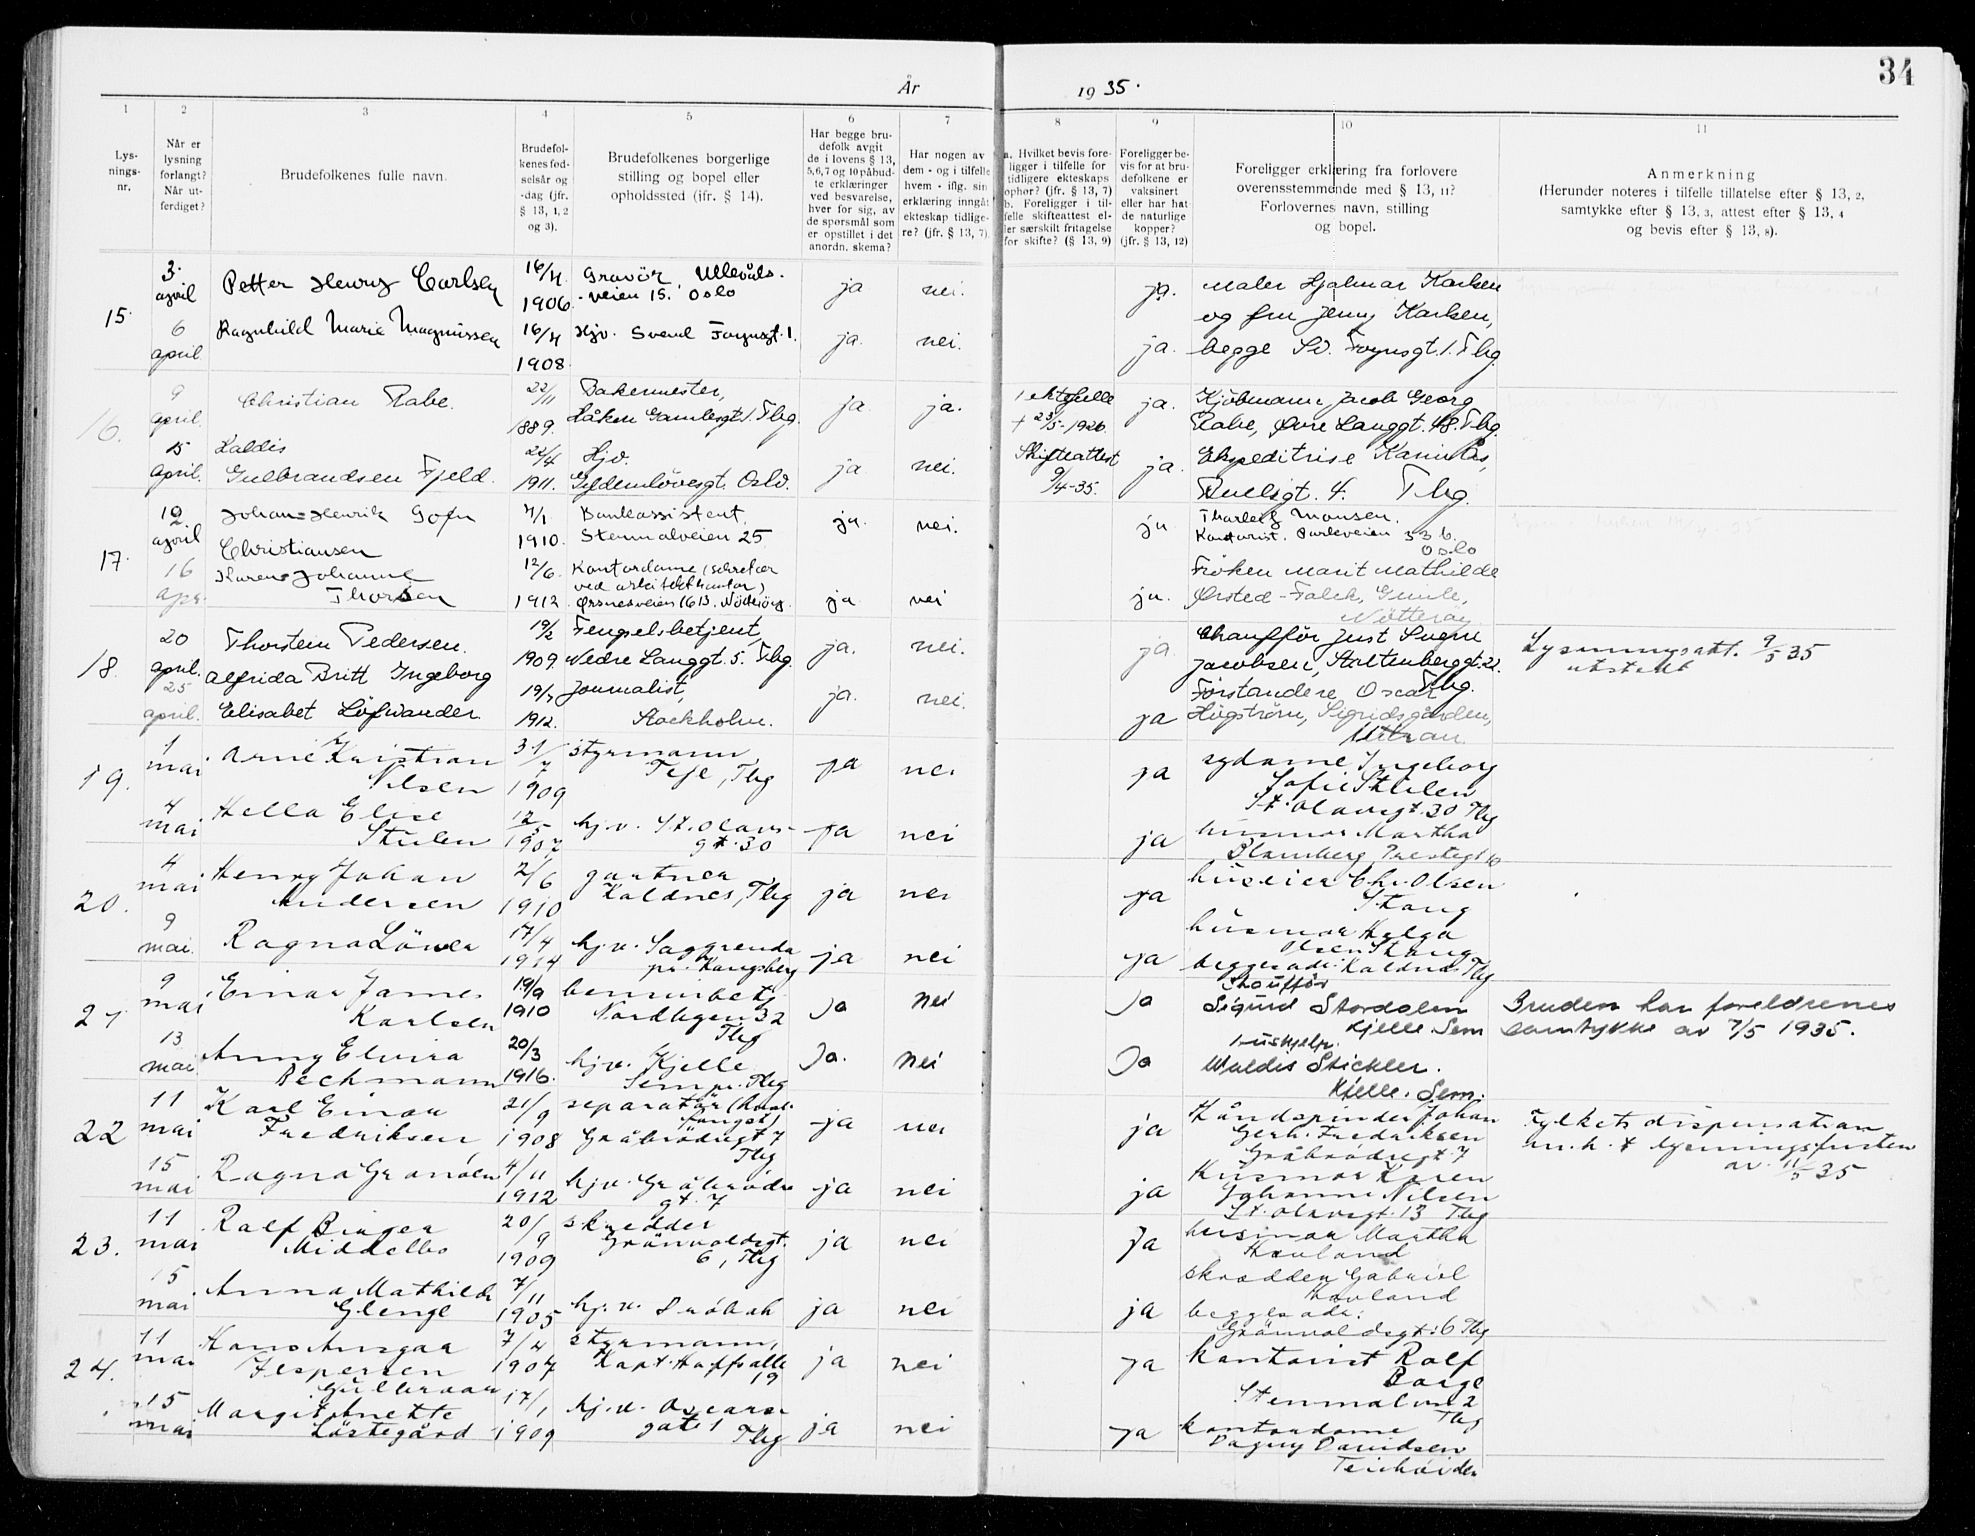 34
År 1935.
1
Lys-
nings-
nr.
2
Når er
lysning
forlangt?
Når ut-
ferdiget?
3
Brudefolkenes fulle navn.
4
Brudefol-
kenes fød-
selsår og
-dag (jfr.
§ 13, 1, 2
og 3).
5
Brudefolkenes borgerlige
stilling og bopel eller
opholdssted (jfr. § 14).
6
Har begge bru-
defolk avgit
de i lovens § 13,
5,6,7 og 10 påbud-
te erklæringer
ved besvarelse,
hver for sig, av
de spørsmål som
er opstillet i det
anordn. skema?
7
Har nogen av
dem - og i tilfelle
hvem - iflg. sin
erklæring inngåt
ekteskap tidlige-
re? (jfr. § 13, 7).
8
a. Hvilket bevis fore-
ligger i tilfelle for
tidligere ekteskaps
ophør? (jfr. § 13, 7)
b. Foreligger i til-
felle skifteattest el-
ler særskilt fritagelse
for skifte? (§ 13, 9)
9
Foreligger be-
vis for at bru-
defolkene er
vaksinert
eller har hat
de naturlige
kopper?
(jfr. § 13, 12)
10
Foreligger erklæring fra forlovere
overensstemmende med § 13, 11?
Forlovernes navn, stilling
og bopel.
11
Anmerkning
(Herunder noteres i tilfelle tillatelse efter § 13, 2,
samtykke efter § 13, 3, attest efter § 13, 4
og bevis efter § 13, 8).
15.
3. april
Petter Henry Carlsen
16/4 1906
Gravör, Ullevåls-
veien 15. Oslo
ja
nei.
ja.
Maler Hjalmar Karlsen
og fru Jenny Karlsen,
6 april
Ragnhild Marie Magnussen
16/4 1908
Hjv. Svend Foynsgt. 1.
ja.
nei.
ja.
begge Sv. Foynsgt. 1. Tbg.
16.
9 april.
Christian Rabe.
22/11 1889.
Bakermester,
Håken Gamlesgt. 1. Tbg.
ja.
ja.
1 ektefelle
+ 23/5-1926
ja.
Kjöbmann Jacob Georg
Rabe, Øvre Langgt. 48. Tbg.
15 april.
Kaldis
Gulbrandsen Fjeld.
22/4 1911.
Hjv.
Gyldenlövesgt. Oslo.
ja
nei.
Skifteattest
9/4-35.
ja.
Ekspeditrise
4. Tbg.
17.
12 april
Johan Henrik
Christiansen
4/1 1910.
Bankassistent.
Stenmalveien 25
ja.
nei.
ja
Monsen.
Kontorist. Parkveien 53 b.
Oslo
16 apr.
Karen Johanne
Thorsen
12/6. 1912
Kontordame (sekretær
ved arkitektkontor)
Nöteröy.
ja
nei
ja.
Fröken Marit Mathilde
Ørsted-Falck,
Nötteröy
18.
20 april.
Thorstein Pedersen.
19/2 1909.
Fengselsbetjent,
Nedre Langgt. 5. Tbg.
ja.
nei.
ja.
Chauffør Just Sugne
Jacobsen, Stoltenberggt. 21.
Tbg.
Lysningsatt. 9/5 35
utstedt
25 april.
Alfrida Britt Ingeborg
Elisabet Löfwander
19/7 1912.
Journalist,
Stockholm.
ja.
nei.
ja
Förstandere Oscar
Högström, Sigridsgården,
Uttran
19.
1 mai
Arne Kristian
Nilsen
31/7 1909
styrmann
Teie, Tbg
ja
nei
ja
sydame Ingeborg
Sofie Stulen
St. Olavsgt. 30 Tbg
4 mai
Hella Elise
Stulen
12/5 1907
hj.v. St. Olavs-
gt. 30
ja
nei
ja
husmor Martha
Blomberg Prestegt 10
20.
4 mai
Henry Johan
Andersen
2/6 1910
gartner
Kaldnes, Tbg
ja
nei
ja
huseier Chr. Olsen
Stang
9 mai.
Ragna Löver
17/4 1914
hj.v. Saggrenda
pr. Kongsberg
ja
nei
ja
husmor Helga
Olsen Stang
begges adr: Kaldnes Tbg
21
9 mai
Einar James
Karlsen
19/9 1910
bensinbetj
Nordbyen 32
Tbg
Ja
nei
Ja
Chauffør
Sigurd Stordalen
Kjelle Sem
Bruden har foreldrenes
samtykke av 7/5 1935.
13 mai
Anny Elvira
Bechmann
20/3 1916.
hj.v. Kjelle
Sem pr. Tbg
Ja.
nei
Ja
hushjelp.
Waldis Stickler.
Kjelle. Sem.
22
11 mai
Karl Einar
Fredriksen
21/9 1908
separatör (hval-
fangst)
Gråbrödregt 7
Tbg
ja
nei
ja
Håndspinder Johan
Gerh. Fredriksen
Gråbrödregt. 7
Fylkets dispensation
m.h.t. lysningsfristen
av 11/5 35
15 mai
Ragna Granöien
4/11 1912
hj.v. Gråbrödre
gt. 7
ja
nei
ja
Husmor Karen
Johanne Nilsen
St. Olavsgt. 13 Tbg
23.
11 mai
Rolf Birger
Middelbo
20/9 1909
skredder
Grönvoldsgt.
6, Tbg
ja
nei
ja
husmor Martha
Havland
15 mai
Anna Mathilde
Glenge
7/11 1905
hj.v. Dröbak
ja
nei
ja
skredder Gabriel
Havland
begges adr:
Grönvoldsgt: 6 Tbg
24.
11 mai
Hans Ansgar
Jespersen
Gulbraar
7/4 1907
styrmann,
Kapt. Hoffs alle
19
ja
nei
ja
kontorist Rolf
Borge
Stenmalvn 2
Tbg
15 mai
Margit Anette
Löstegård
17/1 1909
hj.v. Oscars
gate 1 Tbg
ja
nei
ja
kontordame
Dagny Davidsen
Teiehöiden